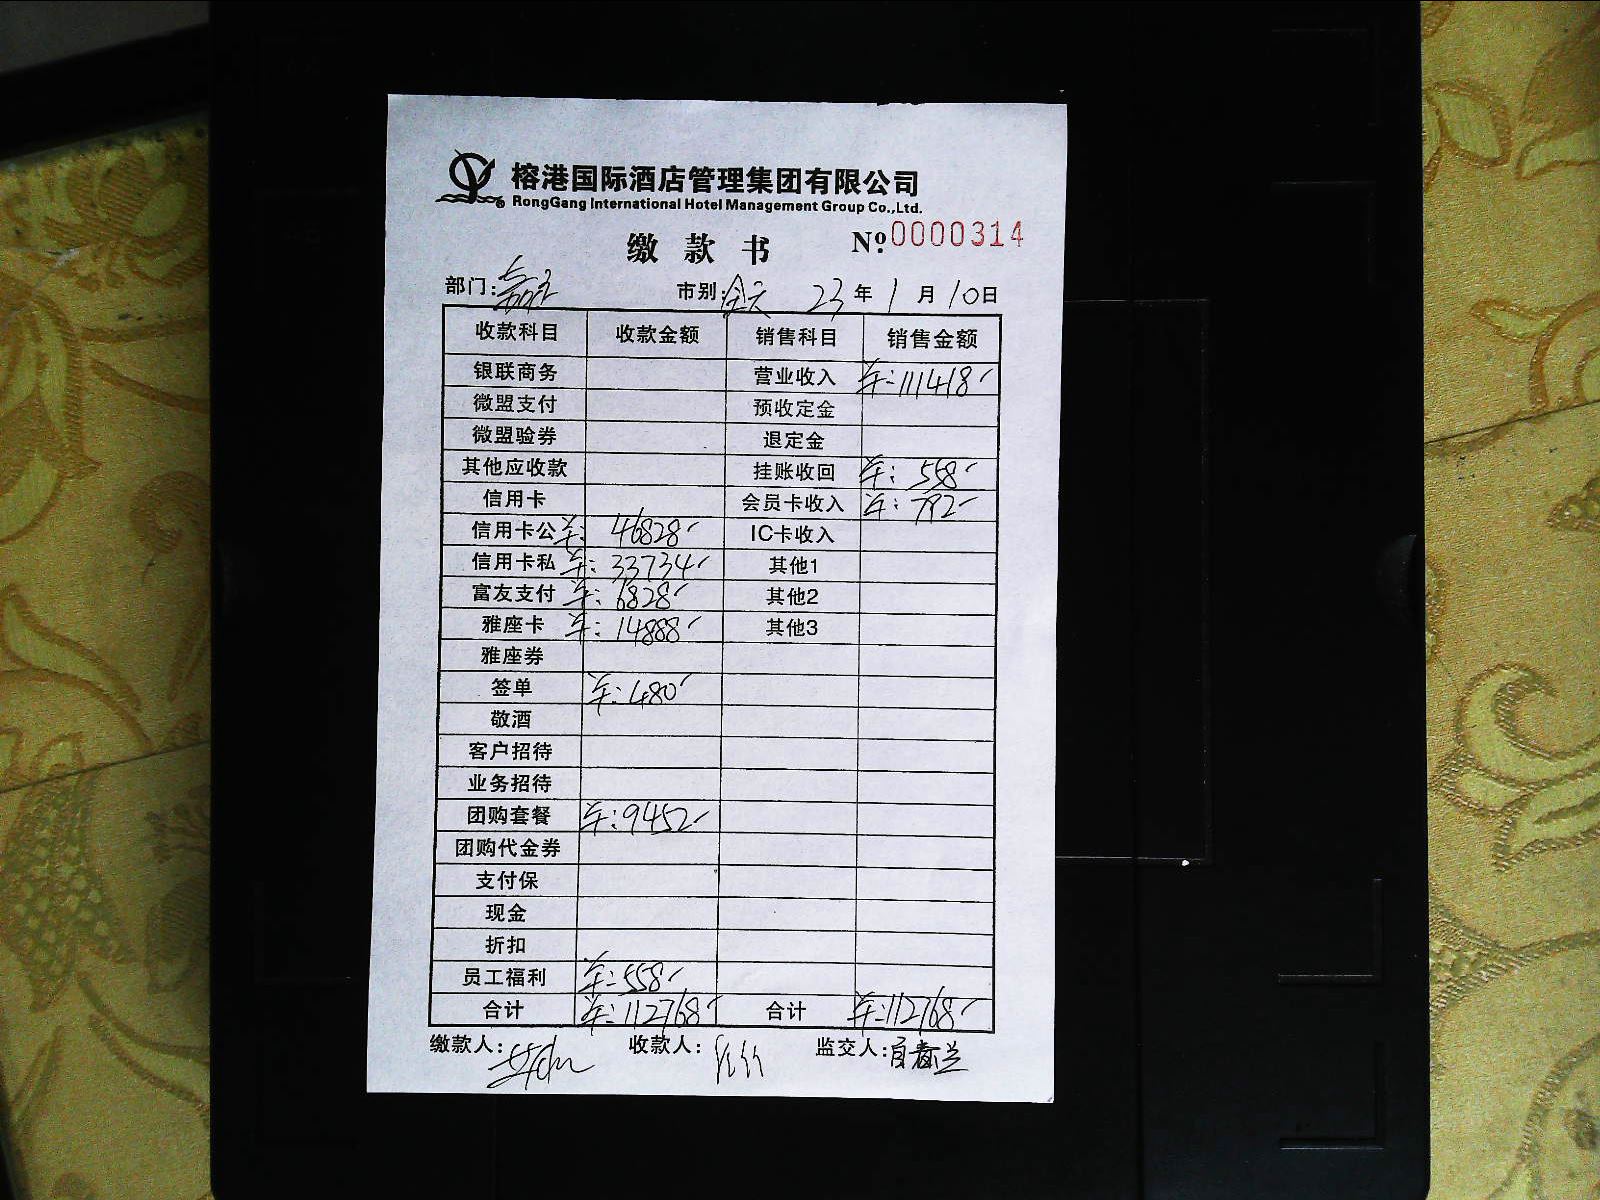 榕港国际酒店管理集团有限公司
RongGang International Hotel Management Group Co.,Ltd.
缴款书 Nº:0000314
部门: 市别:全天 23年1月10日
收款科目 收款金额 销售科目 销售金额
银联商务 营业收入 羊:111418
微盟支付 预收定金
微盟验券 退定金
其他应收款 挂账收回 羊:558
信用卡 会员卡收入 羊:792
信用卡公 羊:46828 IC卡收入
信用卡私 羊:33734 其他1
富友支付 羊:6828 其他2
雅座卡 羊:14888 其他3
雅座券
签单 羊:480
敬酒
客户招待
业务招待
团购套餐 羊:9452
团购代金券
支付保
现金
折扣
员工福利 羊:558
合计 羊:112768 合计 羊:112768
缴款人: 收款人: 监交人:肖春兰